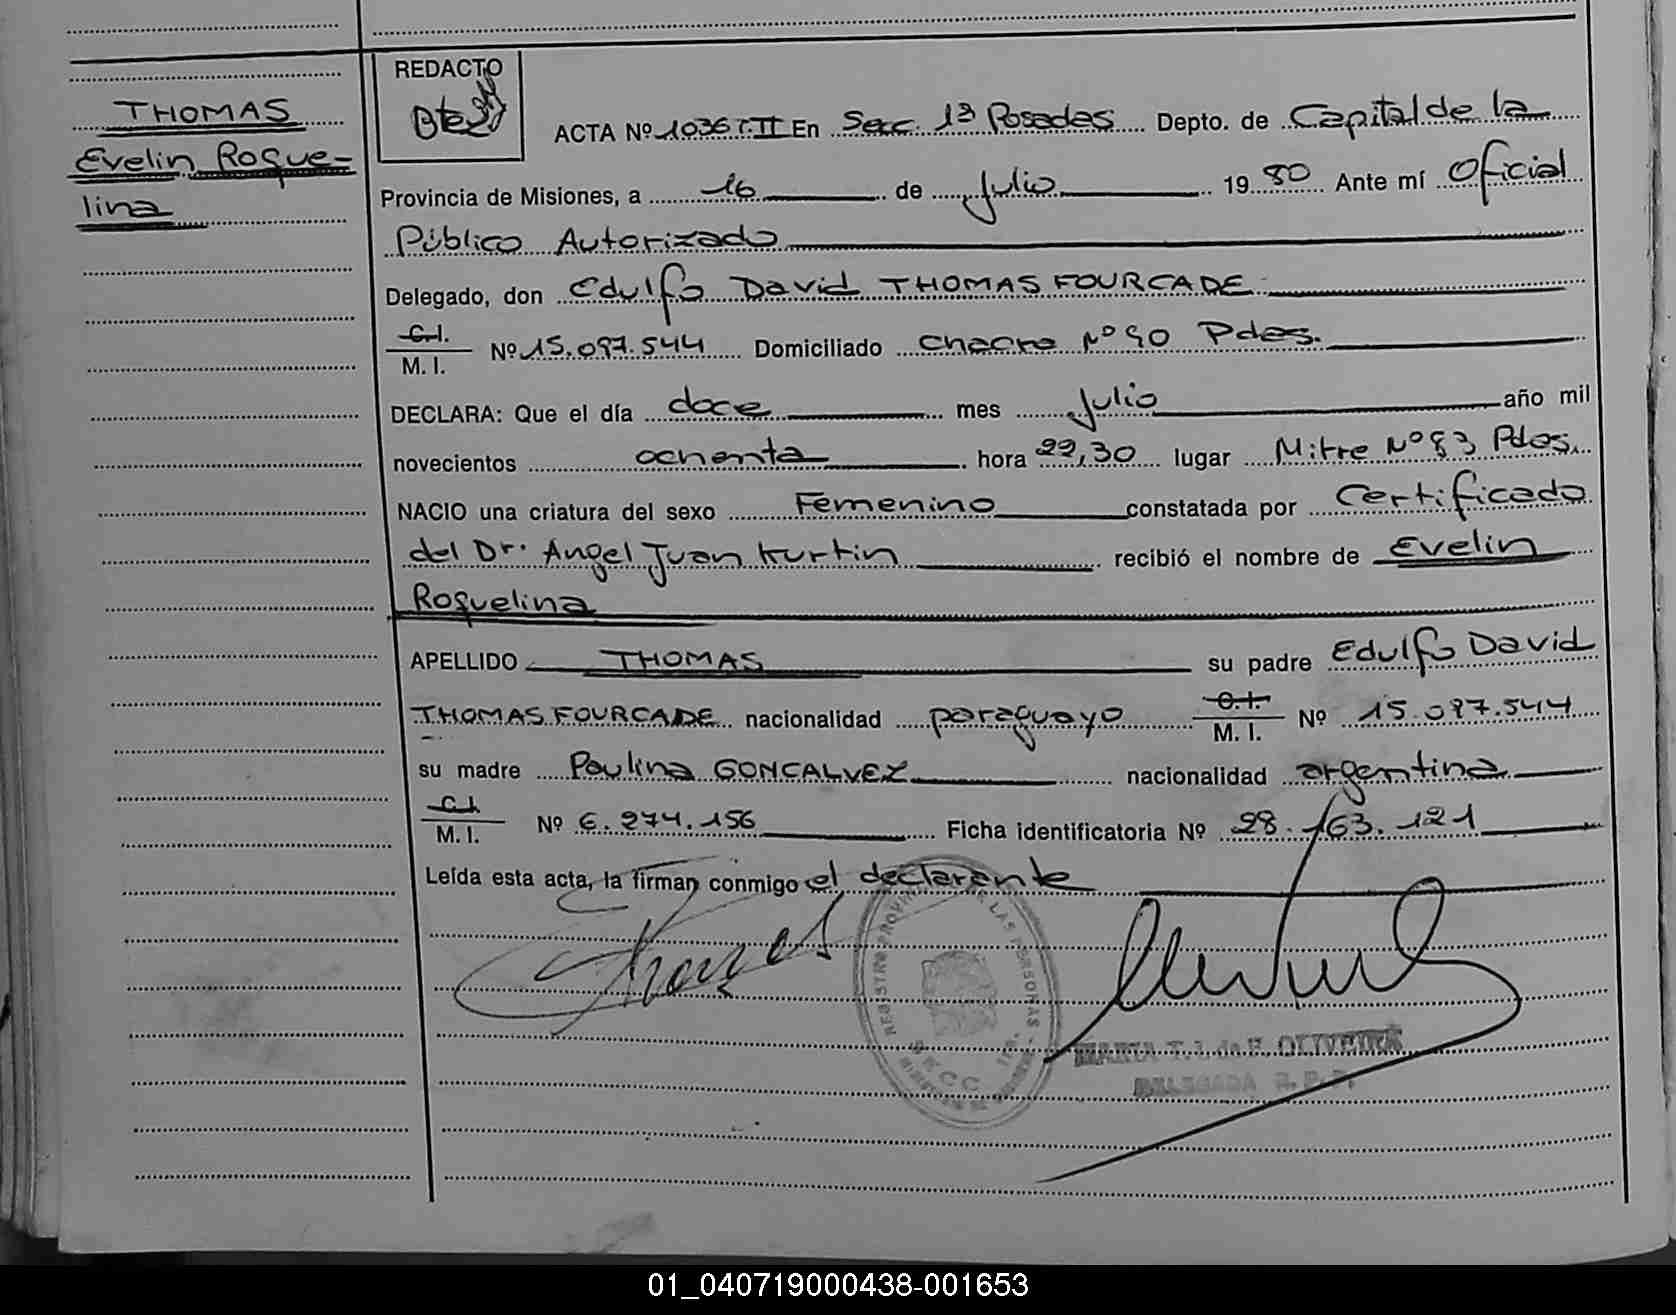 THOMAS
Evelin Roque-
lina
REDACTO
ACTA Nº 1036 T. II En Secc. 1ª Posadas Depto. de Capital de la
Provincia de Misiones, a 16 de Julio 1980 Ante mí Oficial
Público Autorizado
Delegado, don Edulfo David THOMAS FOURCADE
C.I.
M. I. Nº 15.097.544 Domiciliado chacra Nº 90 Pdas.
DECLARA: Que el día doce mes Julio año mil
novecientos ochenta hora 22,30 lugar Mitre Nº 83 Pdas.
NACIO una criatura del sexo Femenino constatada por Certificado
del Dr. Angel Juan Kurtin recibió el nombre de Evelin
Roquelina
APELLIDO THOMAS su padre Edulfo David
THOMAS FOURCADE nacionalidad paraguayo C.I.
M. I. Nº 15.097.544
su madre Paulina GONCALVEZ nacionalidad argentina
C.I.
M. I. Nº 6.274.156 Ficha identificatoria Nº 28.163.121
Leída esta acta, la firman conmigo el declarante
REGISTRO PROVINCIAL DE LAS PERSONAS
SECC. 1ra.
MARIA T. L. de F. OLIVEIRA
DELEGADA R. P. P.
01_040719000438-001653